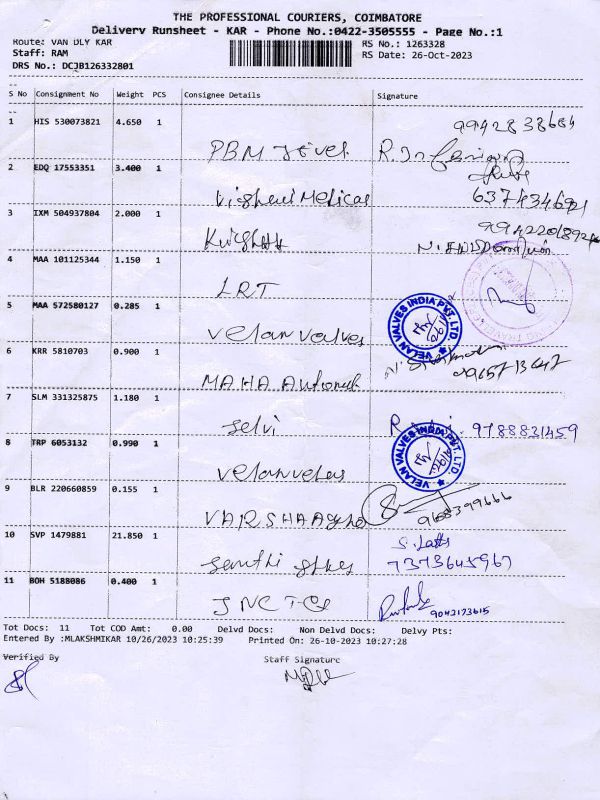 THE PROFESSIONAL COURIERS, COIMBATORE
Delivery Runsheet - KAR - Phone No.:0422-3505555 - Page No.:1
Route: VAN DLY KAR
RS No.: 1263328
Staff: RAM
RS Date: 26-Oct-2023
DRS No.: DCJB126332801
S No Consignment No Weight PCS Consignee Details Signature
1 HIS 530073821 4.650 1
9942838684
PBM
2 EDQ 17553351 3.400 1
Medical 6374346921
3 IXM 504937804 2.000 1
4 MAA 101125344 1.150 1
LRT
5 MAA 572580127 0.285 1
Velan Valves
VELAN VALVES INDIA PVT. LTD.
6 KRR 5810703 0.900 1
MAHA
9965713647
7 SLM 331325875 1.180 1
Selvi 9788831459
8 TRP 6053132 0.990 1
VELAN VALVES INDIA PVT. LTD.
9 BLR 220660859 0.155 1
VARSHA
9688399666
10 SVP 1479881 21.850 1
7373645967
11 BOH 5188086 0.400 1
9043173615
Tot Docs: 11 Tot COD Amt: 0.00 Delvd Docs: Non Delvd Docs: Delvy Pts:
Entered By :MLAKSHMIKAR 10/26/2023 10:25:39 Printed On: 26-10-2023 10:27:28
Verified By Staff Signature